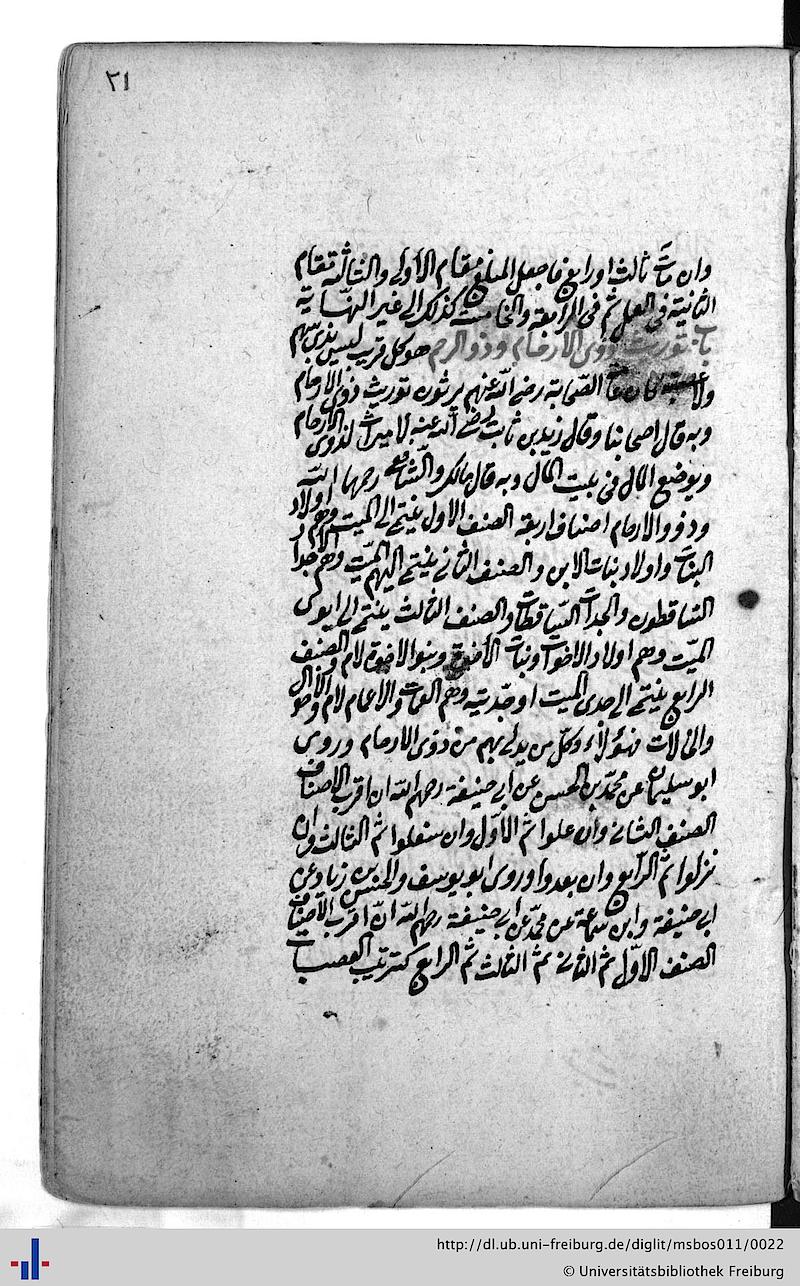 ٢١
وان مات ثالث او رابع فاجعل المبلغ مقام الاولى والثالثة مقام
الثانية في العمل ثم في الرابعة والخامسة كذلك الى غير النهاية
باب توريث ذوى الارحام وذو الرحم هو كل قريب ليس بذى سهم
ولا عصبة كان الصحابة رضى الله عنهم يرثون توريث ذوى الارحام
وبه قال اصحابنا وقال زيد بن ثابت رضى الله عنه لا ميراث لذوى الارحام
ويوضع المال في بيت المال وبه قال مالك والشافعى رحمهما الله
وذوو الارحام اصناف اربعة الصنف الاول ينتمى الى الميت وهم اولاد
البنات واولاد بنات الابن والصنف الثانى ينتمى اليهم الميت وهم الاجداد
الساقطون والجدات الساقطات والصنف الثالث ينتمى الى ابوى
الميت وهم اولاد الاخوات وبنات الاخوة وبنو الاخوة لام والصنف
الرابع ينتمى الى جدى الميت او جدتيه وهم العمات والاعمام لام والاخوال
والخالات فهؤلاء وكل من يدلى بهم من ذوى الارحام وروى
ابو سليمان عن محمد بن الحسن عن ابى حنيفة رحمهم الله ان اقرب الاصناف
الصنف الثانى وان علوا ثم الاول وان سفلوا ثم الثالث وان
نزلوا ثم الرابع وان بعدوا وروى ابو يوسف والحسن بن زياد عن
ابى حنيفة وابن سماعة عن محمد عن ابى حنيفة رحمهم الله ان اقرب الاصناف
الصنف الاول ثم الثانى ثم الثالث ثم الرابع كترتيب العصبات
http://dl.ub.uni-freiburg.de/diglit/msbos011/0022
© Universitätsbibliothek Freiburg